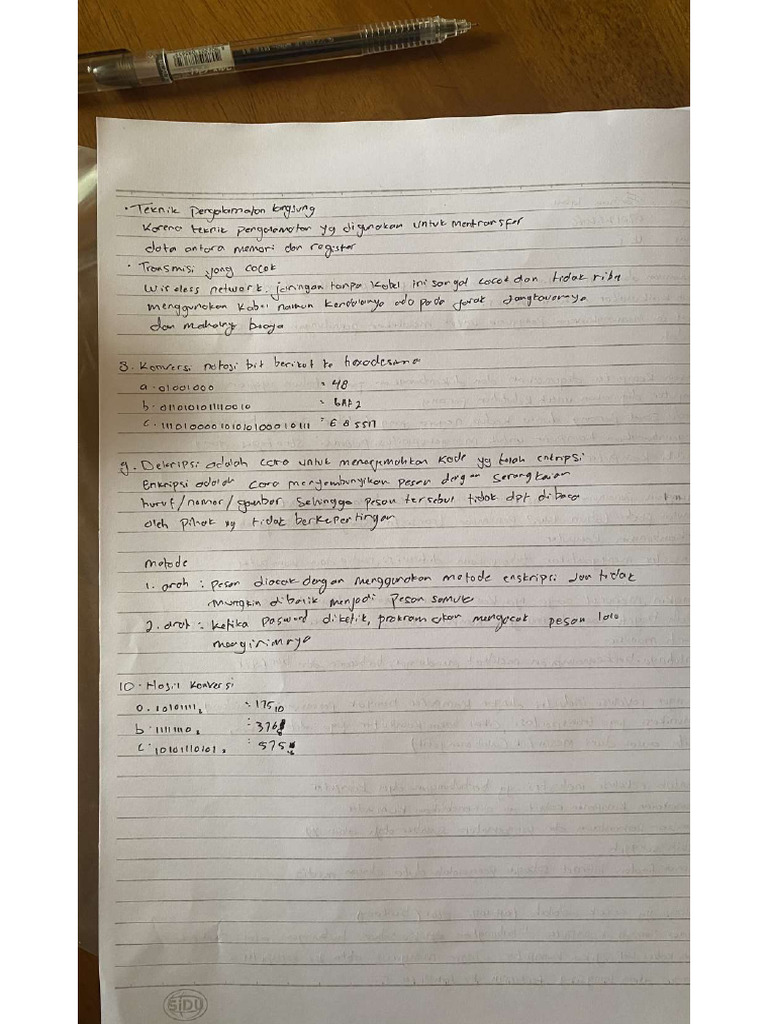 • Teknik Pengalamatan langsung
Karena teknik pengalamatan yg digunakan untuk mentransfer
data antara memori dan register
• Transmisi yang cocok
Wireless network, jaringan tanpa kabel ini sangat cocok dan tidak ribe
menggunakan kabel namun kendalanya ada pada jarak jangkauannya
dan mahalny biaya
8. Konversi notasi bit berikut ke hexadesimal
a. 01001000 = 48
b. 0110101011110010 = 6AF2
c. 111010000101010100010111 = E85517
9. Dekripsi adalah cara untuk menerjemahkan kode yg telah enkripsi
Enkripsi adalah cara menyembunyikan pesan dengan serangkaian
huruf/nomor/gambar, sehingga pesan tersebut tidak dpt dibaca
oleh pihak yg tidak berkepentingan
Metode
1. arah : pesan diacak dengan menggunakan metode enskripsi dan tidak
mungkin dibalik menjadi pesan semula
2. arah : ketika pasword diketik, prokram akan mengacak pesan lalu
mengirimnya
10. Hasil konversi
a. 10101111₂ = 175₁₀
b. 11111110₂ = 376
c. 10101110101₂ = 575
SIDU